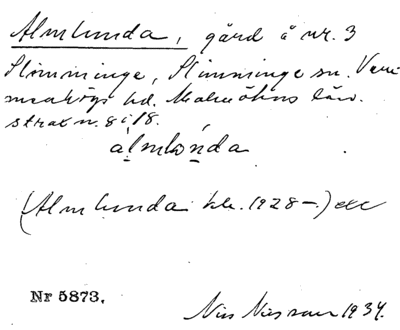 Almlunda, gård å nr. 3
Slimminge, Slimminge sn. Vem-
menhögs hd. Malmöhus län.
strax n. 8 i 18.
almlonda
(Almlunda kk. 1928-) etc
Nr 5873.
Nils Nilsson 1934.